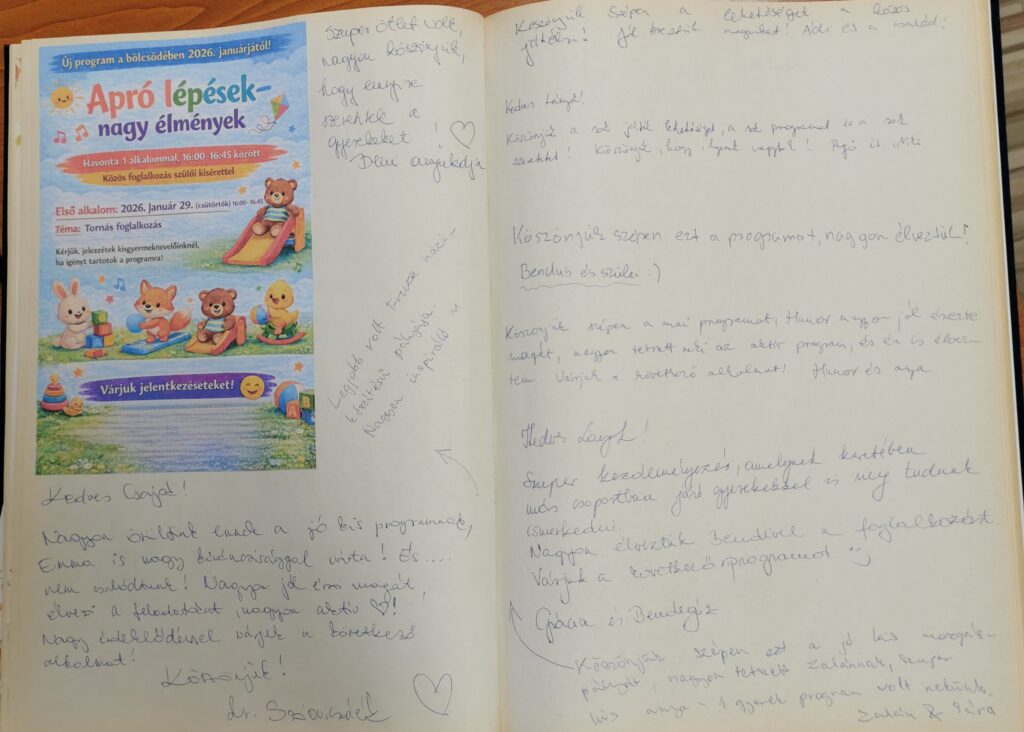 Új program a bölcsödében 2026. januárjától!
Apró lépések-
nagy élmények
Havonta 1 alkalommal, 16:00-16:45 között
Közös foglalkozás szülői kísérettel
Első alkalom: 2026. január 29. (csütörtök) 16:00-16:45
Téma: Tornás foglalkozás
Kérjük, jelezzétek kisgyermeknevelőinknél,
ha igényt tartotok a programra!
Várjuk jelentkezéseteket!
A B
Szuper ötlet volt,
nagyon köszönjük,
hogy ennyire
szeretitek a
gyerekeket!
Legjobb volt
készítési pályája.
Nagyon inspiráló
Kedves Csajok!
Nagyon örültünk ennek a jó kis programnak,
Emma is nagy kíváncsisággal várta! És ....
nem csalódtunk! Nagyon jól érzi magát,
élvezi a feladatokat, nagyon aktív!
Nagy érdeklődéssel várjuk a következő
alkalmat!
Köszönjük!
dr.
Köszönjük szépen a lehetőséget a közös
játékra! Jól éreztük magunkat! és a család!
Kedves Lányok!
Köszönjük a sok játék lehetőséget, a sok programot és a sok
szeretetet! Köszönjük, hogy ilyenek vagytok! és Niki
Köszönjük szépen ezt a programot, nagyon élveztük!
Bendus és szülei :)
Köszönjük szépen a mai programot, Hunor nagyon jól érezte
magát, nagyon tetszett neki az aktív program, és én is élvez-
tem. Várjuk a következő alkalmat! Hunor és anya
Kedves Lányok!
Szuper kezdeményezés, amelynek keretében
más csoportban járó gyerekekkel is meg tudunk
ismerkedni.
Nagyon élveztük Bendével a foglalkozást
Várjuk a következő programot. :)
Grácia és Bendegúz
Köszönjük szépen ezt a jó kis mozgás-
pályát, nagyon tetszett Zalánnak, szuper
kis anya - gyerek program volt nekünk.
Zalán & Sára